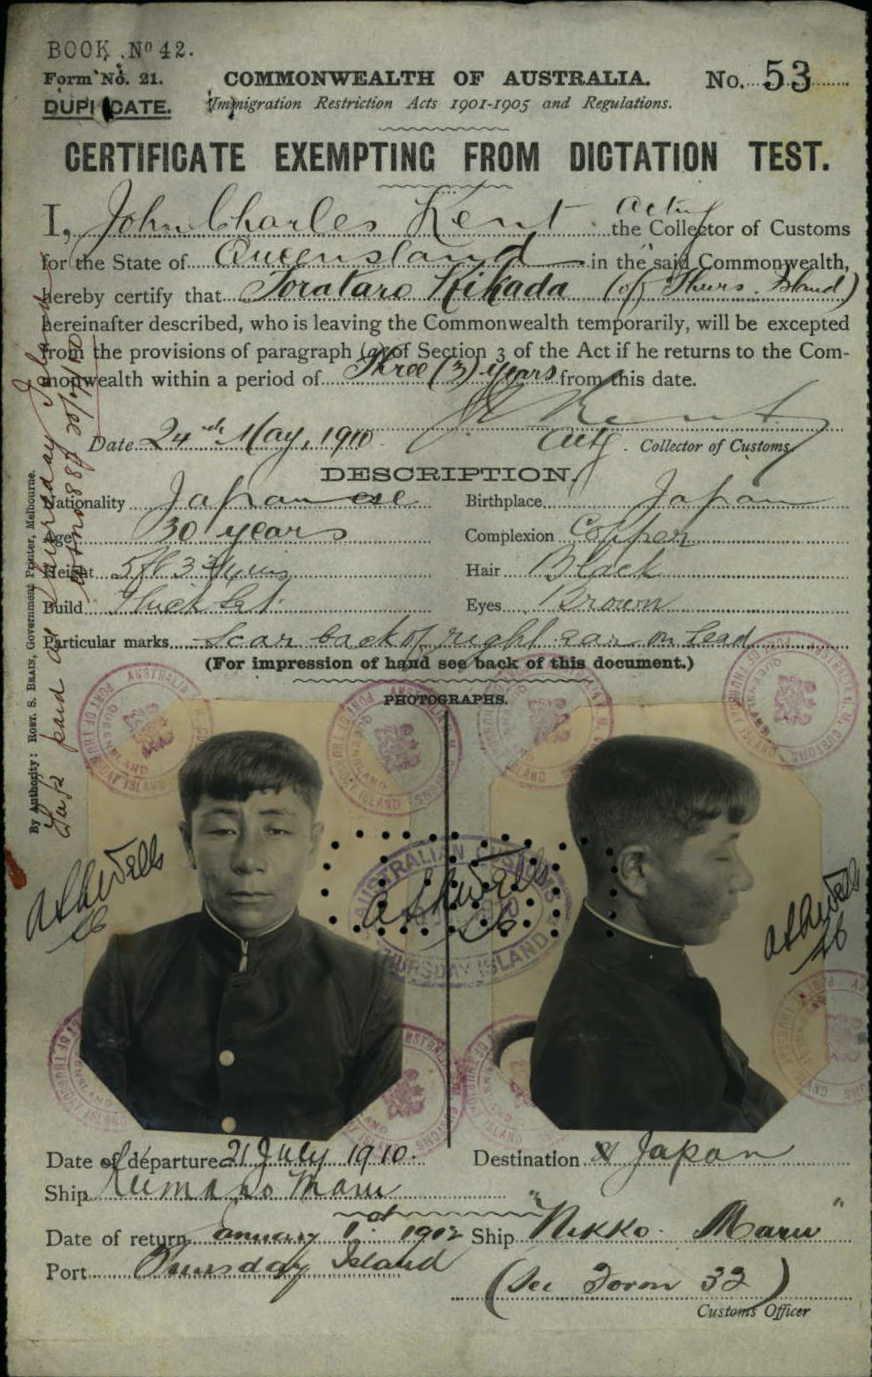 BOOK Nº 42.
Form No. 21.
DUPLICATE.
COMMONWEALTH OF AUSTRALIA.
No. 53
Immigration Restriction Acts 1901-1905 and Regulations.
CERTIFICATE EXEMPTING FROM DICTATION TEST.
I, John Charles Kent Actg the Collector of Customs
for the State of Queensland in the said Commonwealth,
hereby certify that Torataro Kikada (of Thurs. Island)
hereinafter described, who is leaving the Commonwealth temporarily, will be excepted
from the provisions of paragraph (a) of Section 3 of the Act if he returns to the Com-
monwealth within a period of Three (3) years from this date.
Date 24th May, 1910
Kent
Actg. Collector of Customs
DESCRIPTION.
Nationality Japanese Birthplace Japan
Age 30 years Complexion Copper
Height 5ft 3 ins Hair Black
Build Thick Set. Eyes Brown
Particular marks Scar back of right ear on head
(For impression of hand see back of this document.)
PHOTOGRAPHS.
By Authority: ROBT. S. BRAIN, Government Printer, Melbourne.
paid at Thursday Island
AUSTRALIAN CUSTOMS
THURSDAY ISLAND
Date of departure 21 July 1910. Destination Japan
Ship Kumano Maru
Date of return January 1st 1912 Ship "Nikko Maru"
Port Thursday Island
(See Form 32)
Customs Officer